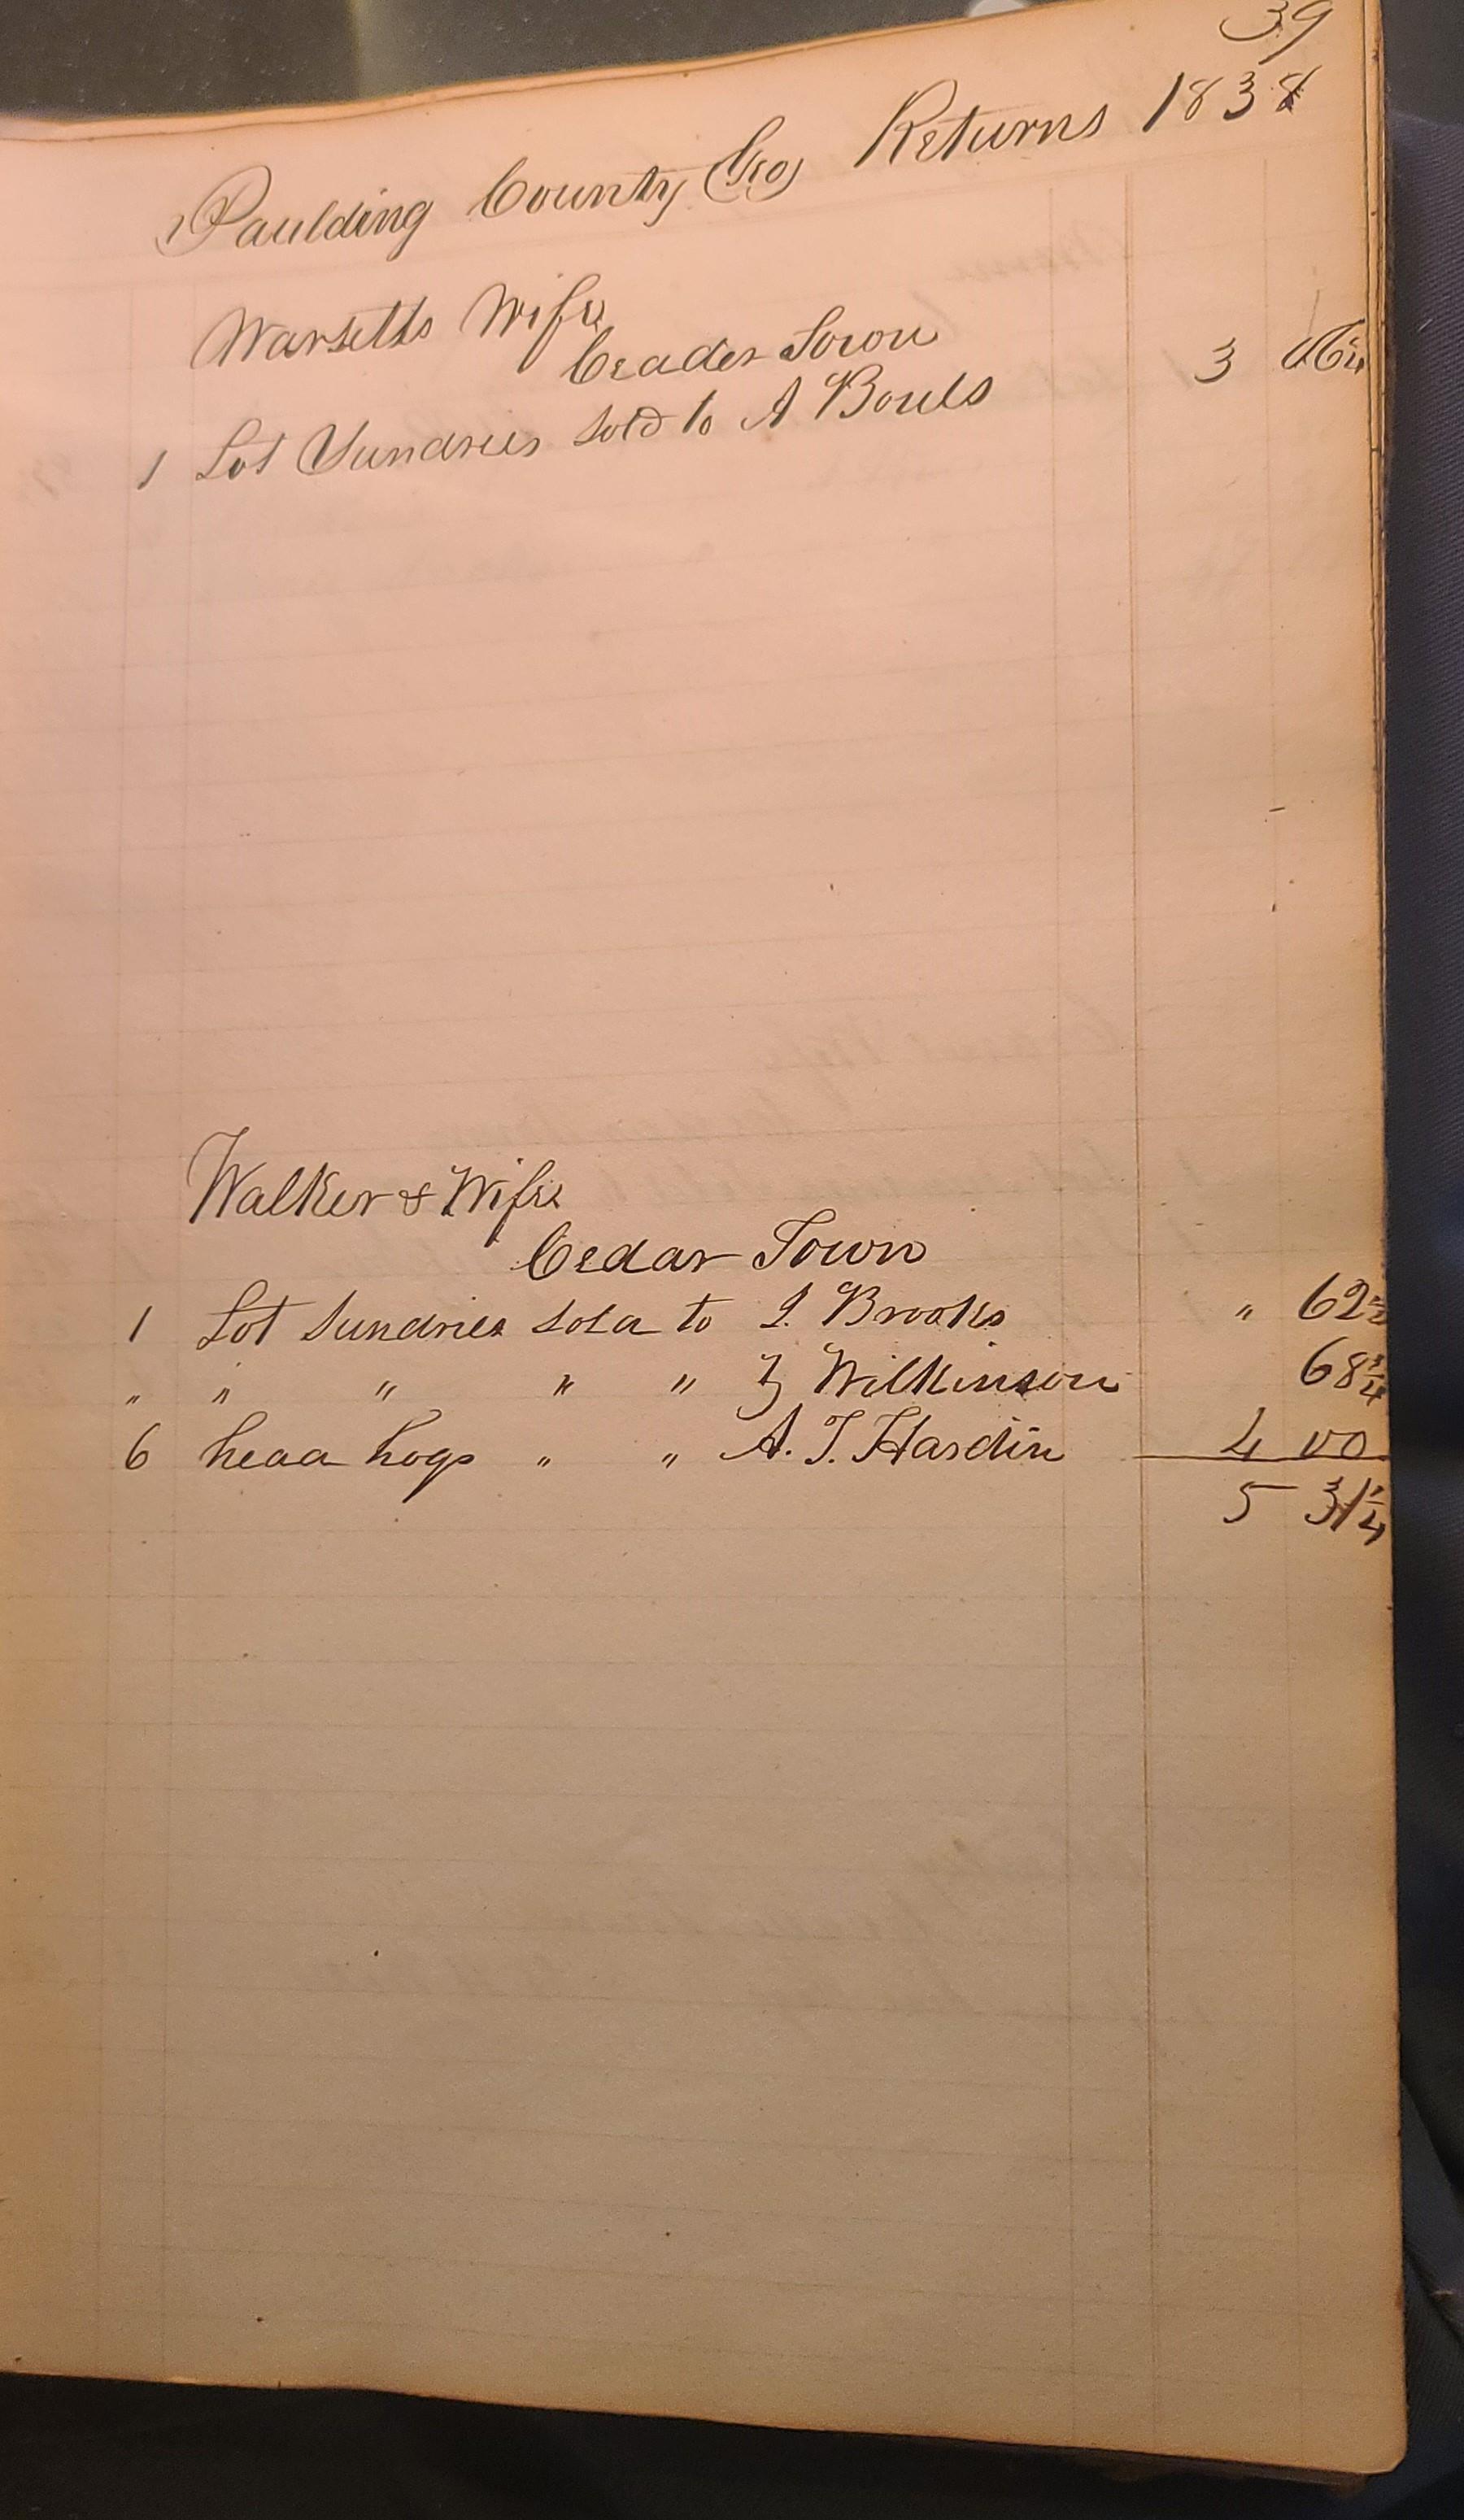 39
Paulding County Geo Returns 1838
Wife
Ceader Town
1 Lot Sundries Sold to A Bouls 3 06¼
Walker & Wife
Cedar Town
1 Lot Sundries Sold to J. Brooks " 62½
" " " " " Z Wilkinson 68¾
6 head hogs " " A. T. Hardin 4 00
5 31¼